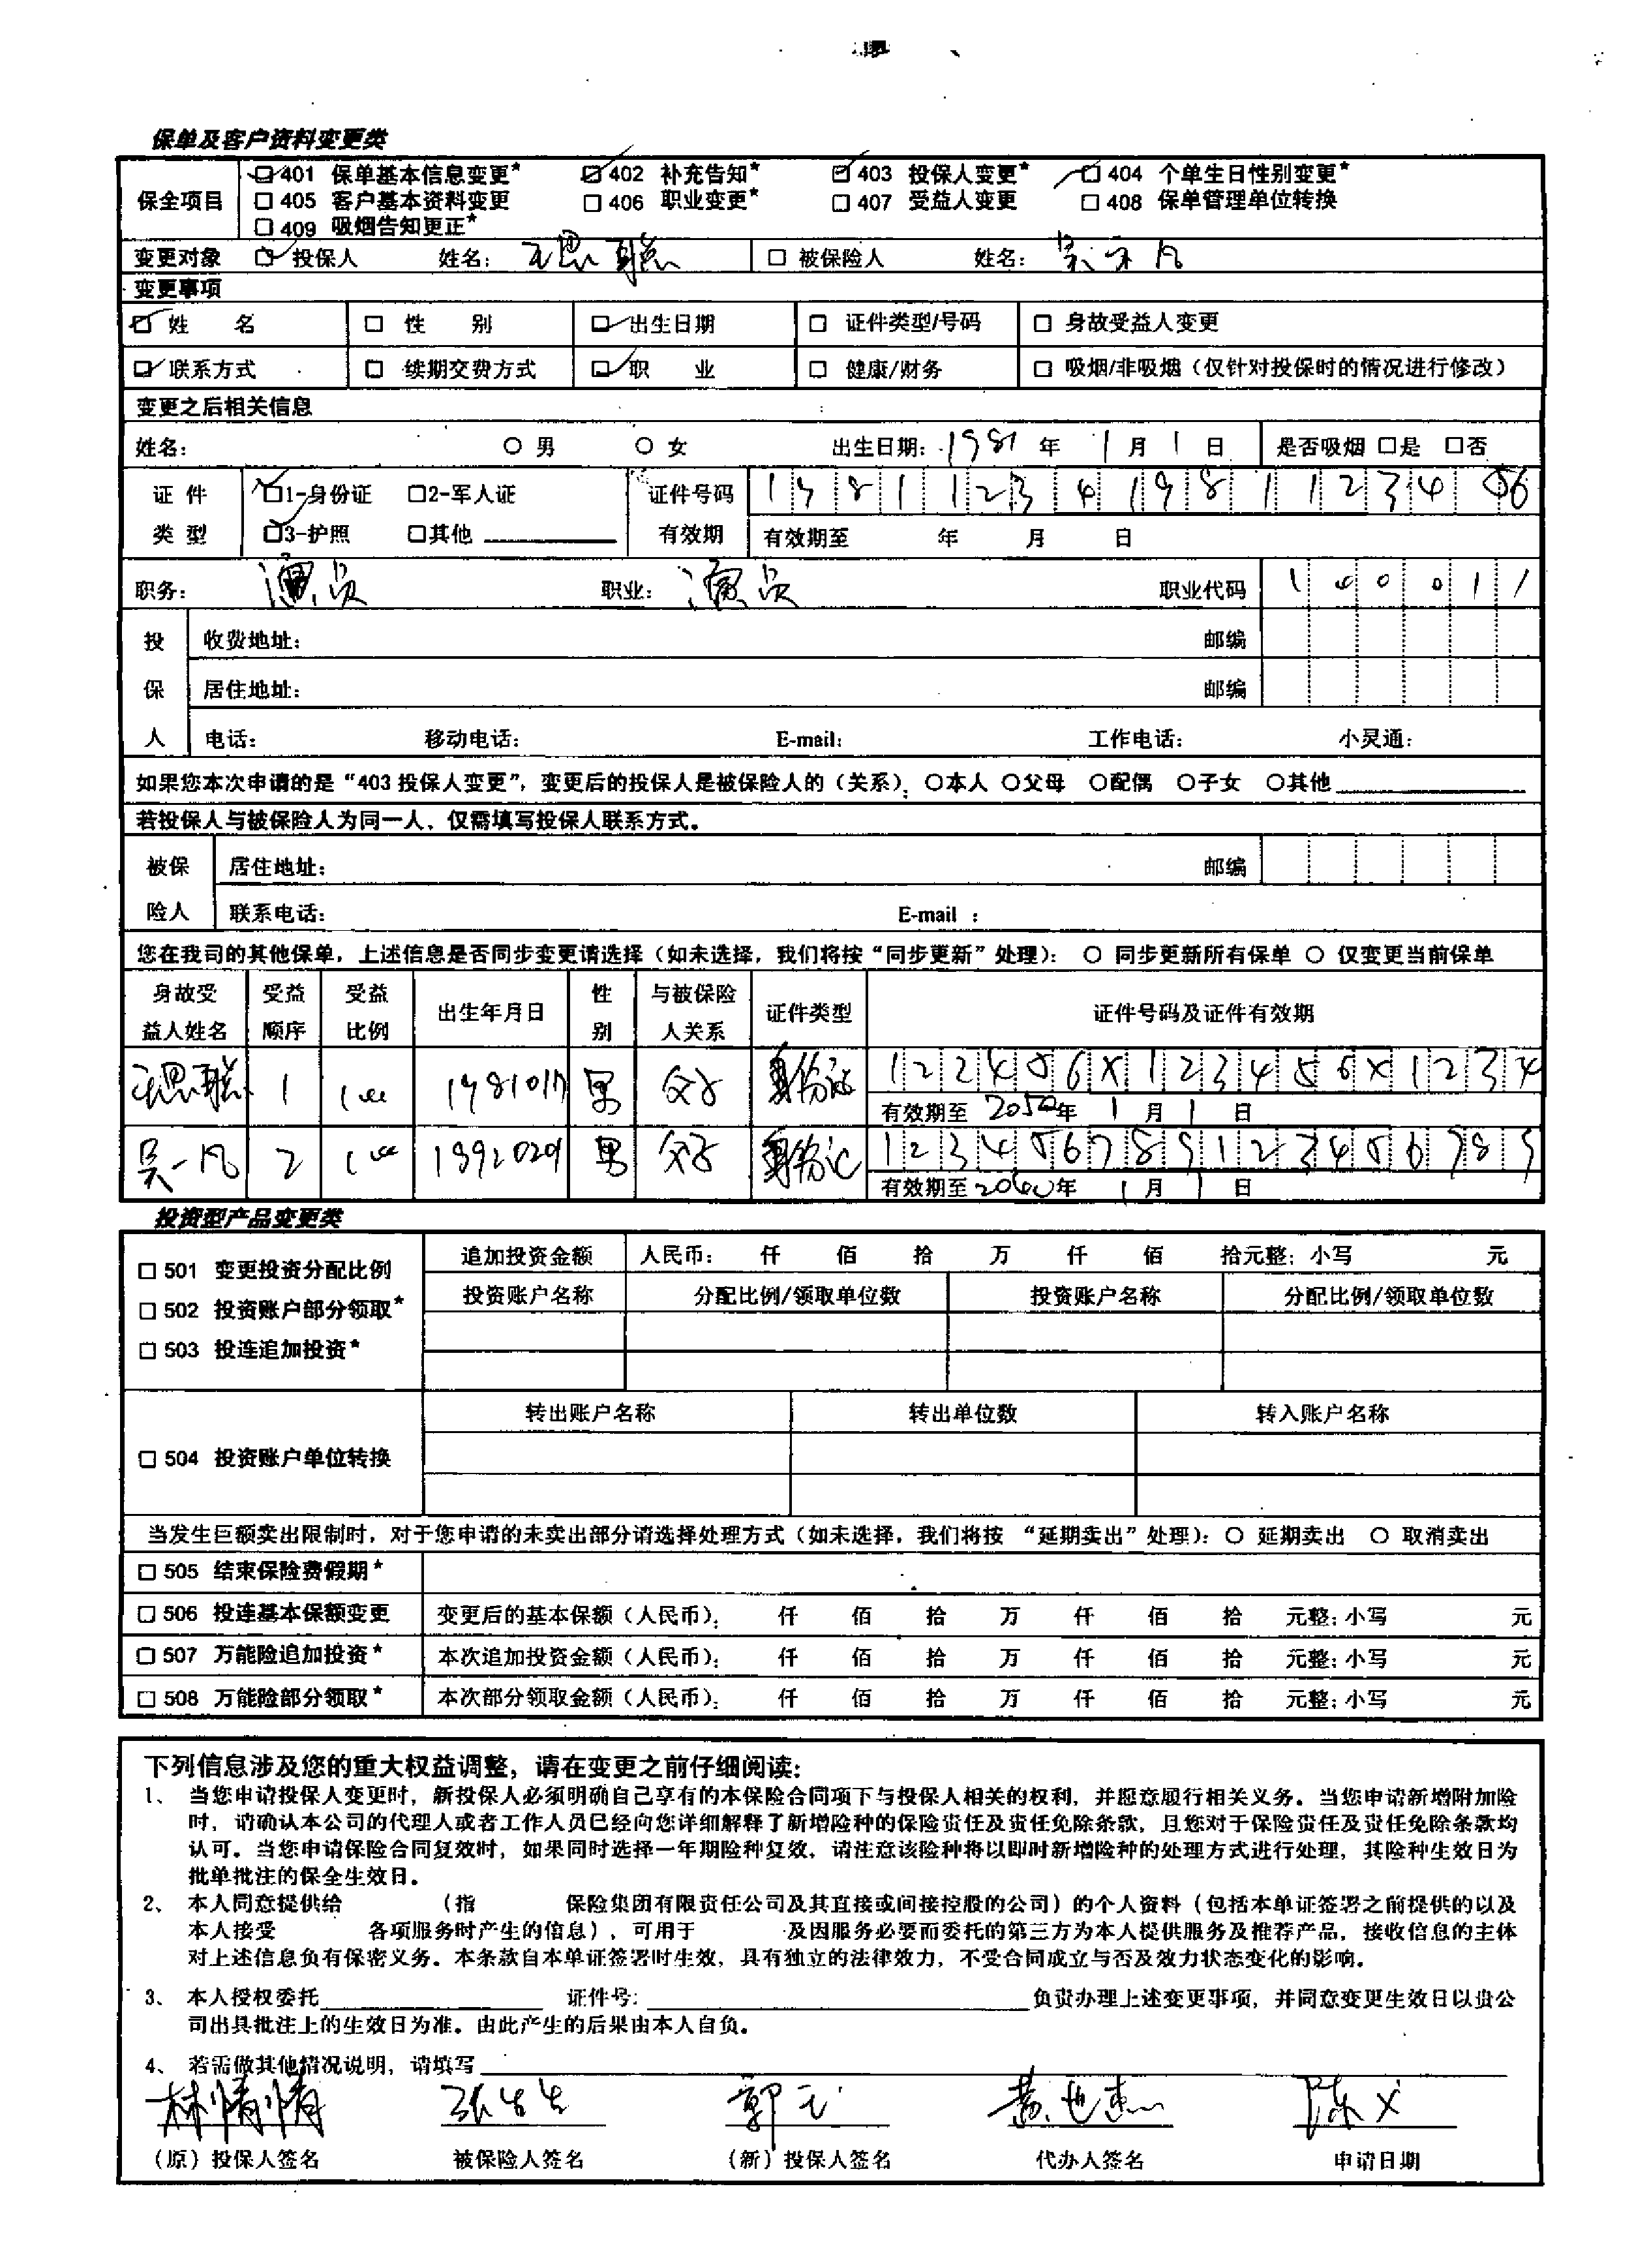 保单及客户资料变更类
保全项目 ☑401 保单基本信息变更* ☑402 补充告知* ☑403 投保人变更* ☑404 个单生日性别变更*
□405 客户基本资料变更 □406 职业变更* □407 受益人变更 □408 保单管理单位转换
□409 吸烟告知更正*
变更对象 ☑投保人 姓名: 王思聪 □被保险人 姓名: 吴亦凡
变更事项
☑姓 名 □性 别 ☑出生日期 □证件类型/号码 □身故受益人变更
☑联系方式 □续期交费方式 ☑职 业 □健康/财务 □吸烟/非吸烟(仅针对投保时的情况进行修改)
变更之后相关信息
姓名: ○男 ○女 出生日期: 1981 年 1 月 1 日 是否吸烟 □是 □否
证 件 ☑1-身份证 □2-军人证 证件号码 1981123419811234 56
类 型 ☑3-护照 □其他 有效期 有效期至 年 月 日
职务: 演员 职业: 演员 职业代码 1 0 0 0 1 1
投 收费地址: 邮编
保 居住地址: 邮编
人 电话: 移动电话: E-mail: 工作电话: 小灵通:
如果您本次申请的是“403 投保人变更”,变更后的投保人是被保险人的(关系): ○本人 ○父母 ○配偶 ○子女 ○其他
若投保人与被保险人为同一人、仅需填写投保人联系方式。
被保 居住地址: 邮编
险人 联系电话: E-mail :
您在我司的其他保单,上述信息是否同步变更请选择(如未选择,我们将按“同步更新”处理): ○ 同步更新所有保单 ○ 仅变更当前保单
身故受 受益 受益 出生年月日 性 与被保险 证件类型 证件号码及证件有效期
益人姓名 顺序 比例 别 人关系
王思聪 1 100 1981017 男 父子 身份证 122456X123456X1234
有效期至 2050年 1 月 1 日
吴一凡 2 100 1992029 男 父子 身份证 123456789123456789
有效期至 2060年 1 月 1 日
投资型产品变更类
□ 501 变更投资分配比例 追加投资金额 人民币: 仟 佰 拾 万 仟 佰 拾元整; 小写 元
□ 502 投资账户部分领取* 投资账户名称 分配比例/领取单位数 投资账户名称 分配比例/领取单位数
□ 503 投连追加投资*
转出账户名称 转出单位数 转入账户名称
□ 504 投资账户单位转换
当发生巨额卖出限制时,对于您申请的未卖出部分请选择处理方式(如未选择,我们将按 “延期卖出”处理): ○ 延期卖出 ○ 取消卖出
□ 505 结束保险费假期*
□ 506 投连基本保额变更 变更后的基本保额(人民币): 仟 佰 拾 万 仟 佰 拾 元整; 小写 元
□ 507 万能险追加投资* 本次追加投资金额(人民币): 仟 佰 拾 万 仟 佰 拾 元整; 小写 元
□ 508 万能险部分领取* 本次部分领取金额(人民币): 仟 佰 拾 万 仟 佰 拾 元整; 小写 元
下列信息涉及您的重大权益调整,请在变更之前仔细阅读:
1、 当您申请投保人变更时,新投保人必须明确自己享有的本保险合同项下与投保人相关的权利,并愿意履行相关义务。当您申请新增附加险
时,请确认本公司的代理人或者工作人员已经向您详细解释了新增险种的保险责任及责任免除条款,且您对于保险责任及责任免除条款均
认可。当您申请保险合同复效时,如果同时选择一年期险种复效,请注意该险种将以即时新增险种的处理方式进行处理,其险种生效日为
批单批注的保全生效日。
2、 本人同意提供给 (指 保险集团有限责任公司及其直接或间接控股的公司)的个人资料(包括本单证签署之前提供的以及
本人接受 各项服务时产生的信息),可用于 及因服务必要而委托的第三方为本人提供服务及推荐产品,接收信息的主体
对上述信息负有保密义务。本条款自本单证签署时生效,具有独立的法律效力,不受合同成立与否及效力状态变化的影响。
3、 本人授权委托 证件号: 负责办理上述变更事项,并同意变更生效日以贵公
司出具批注上的生效日为准。由此产生的后果由本人自负。
4、 若需做其他情况说明,请填写
林情情 张生生 郭元 黄世杰 陈义
(原)投保人签名 被保险人签名 (新)投保人签名 代办人签名 申请日期